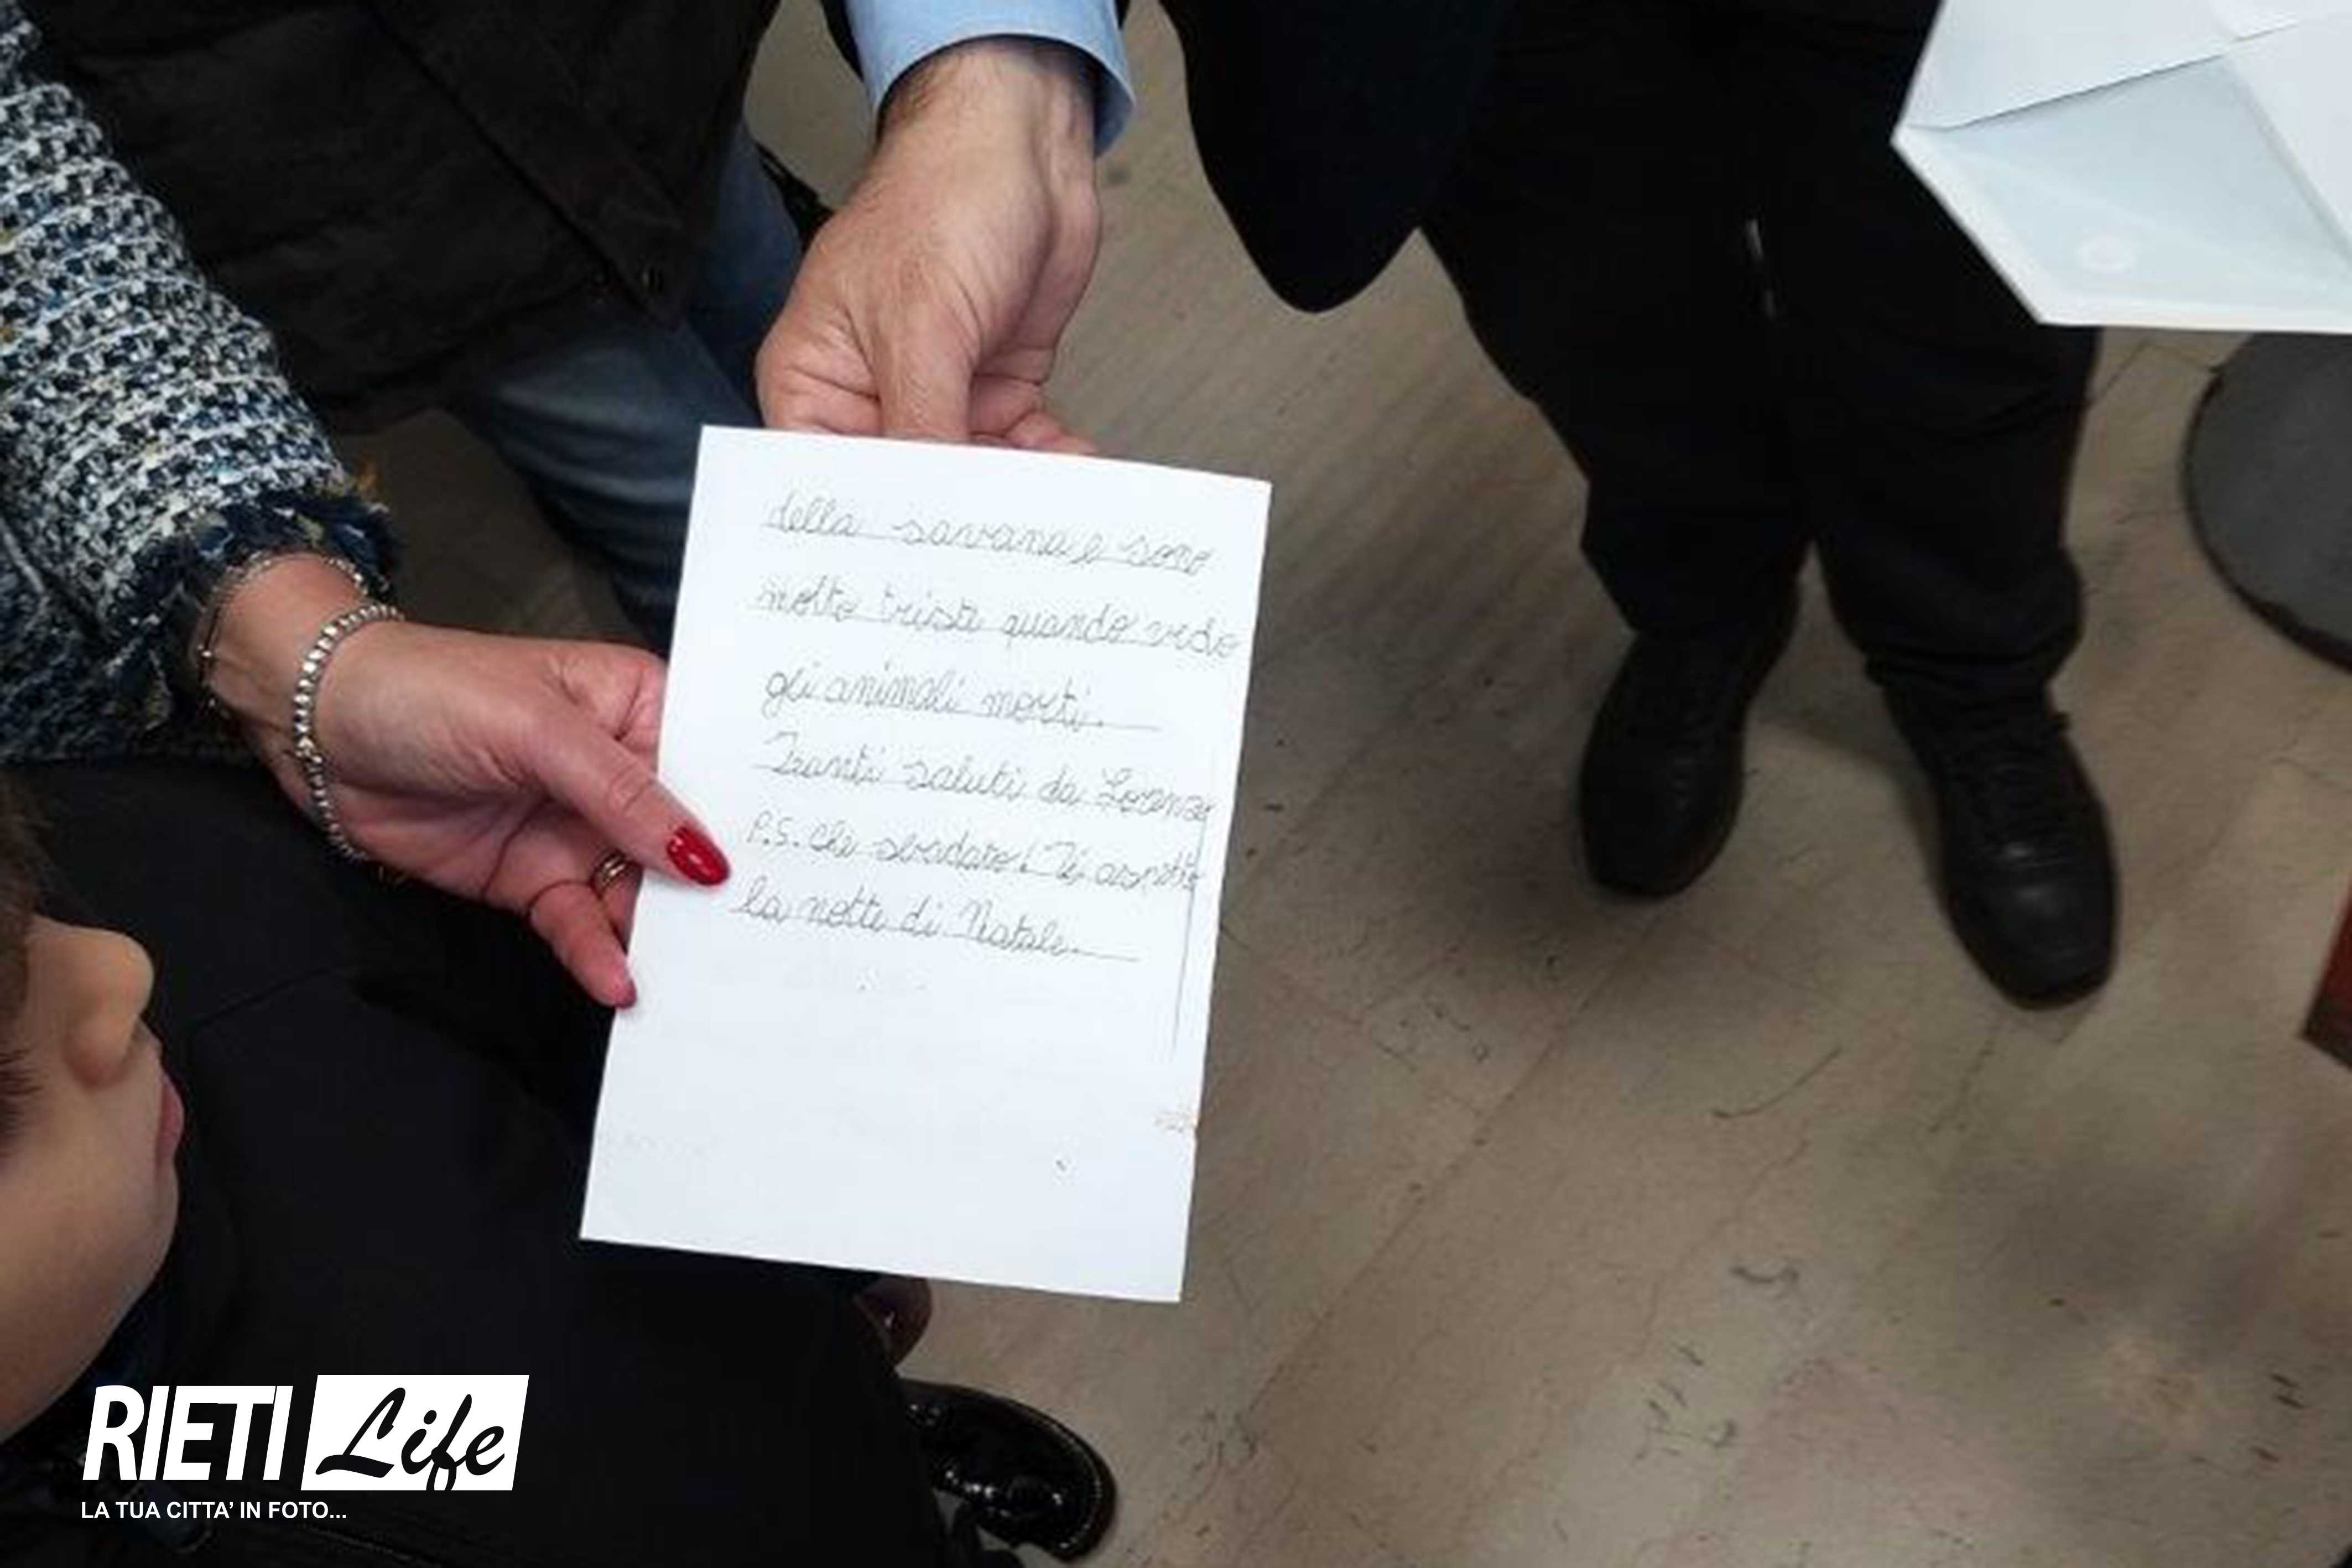 della savana e sono
molto triste quando vedo
gli animali morti.
Tanti saluti da Lorenzo
P.S. Che sbadato! Ti aspetto
la notte di Natale.
RIETI Life
LA TUA CITTA' IN FOTO...